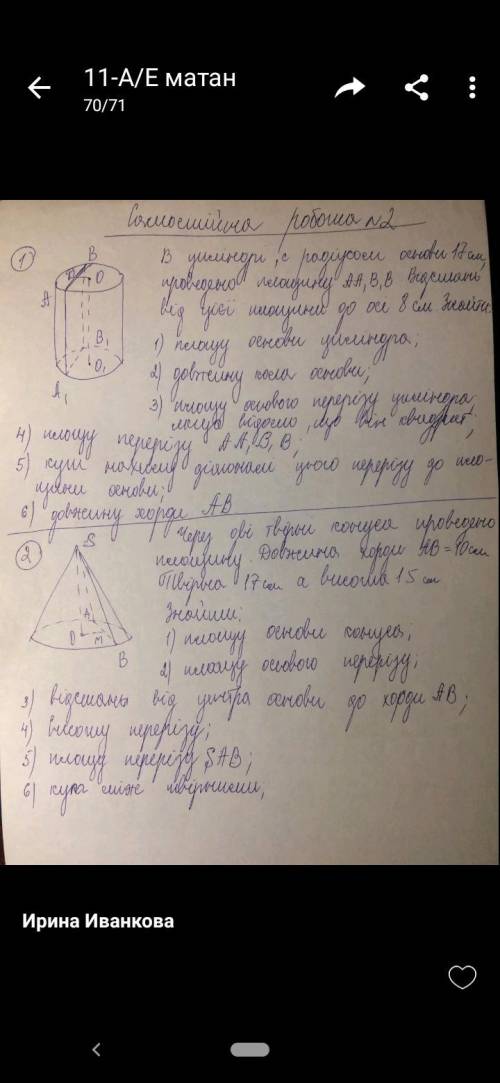 11-А/Е матан
70/71
Самостійна робота №2
1
В циліндрі, с радіусом основи 17 см,
проведено площину AA₁B₁B Відстань
від цієї площини до осі 8 см. Знайти
B
D
O
A
B₁
O₁
A₁
1) площу основи циліндра;
2) довжину кола основи;
3) площу осьового перерізу циліндра,
якщо відомо, що він квадрат;
4) площу перерізу AA₁B₁B;
5) кут нахилу діагоналі цього перерізу до пло-
щини основи;
6) довжину хорди AB
2
S
A
O
M
B
Через дві твірні конуса проведено
площину. Довжина хорди AB = 10 см
Твірна 17 см а висота 15 см
Знайти:
1) площу основи конуса;
2) площу осьового перерізу;
3) відстань від центра основи до хорди AB;
4) висоту перерізу;
5) площу перерізу SAB;
6) кута між твірними,
Ирина Иванкова